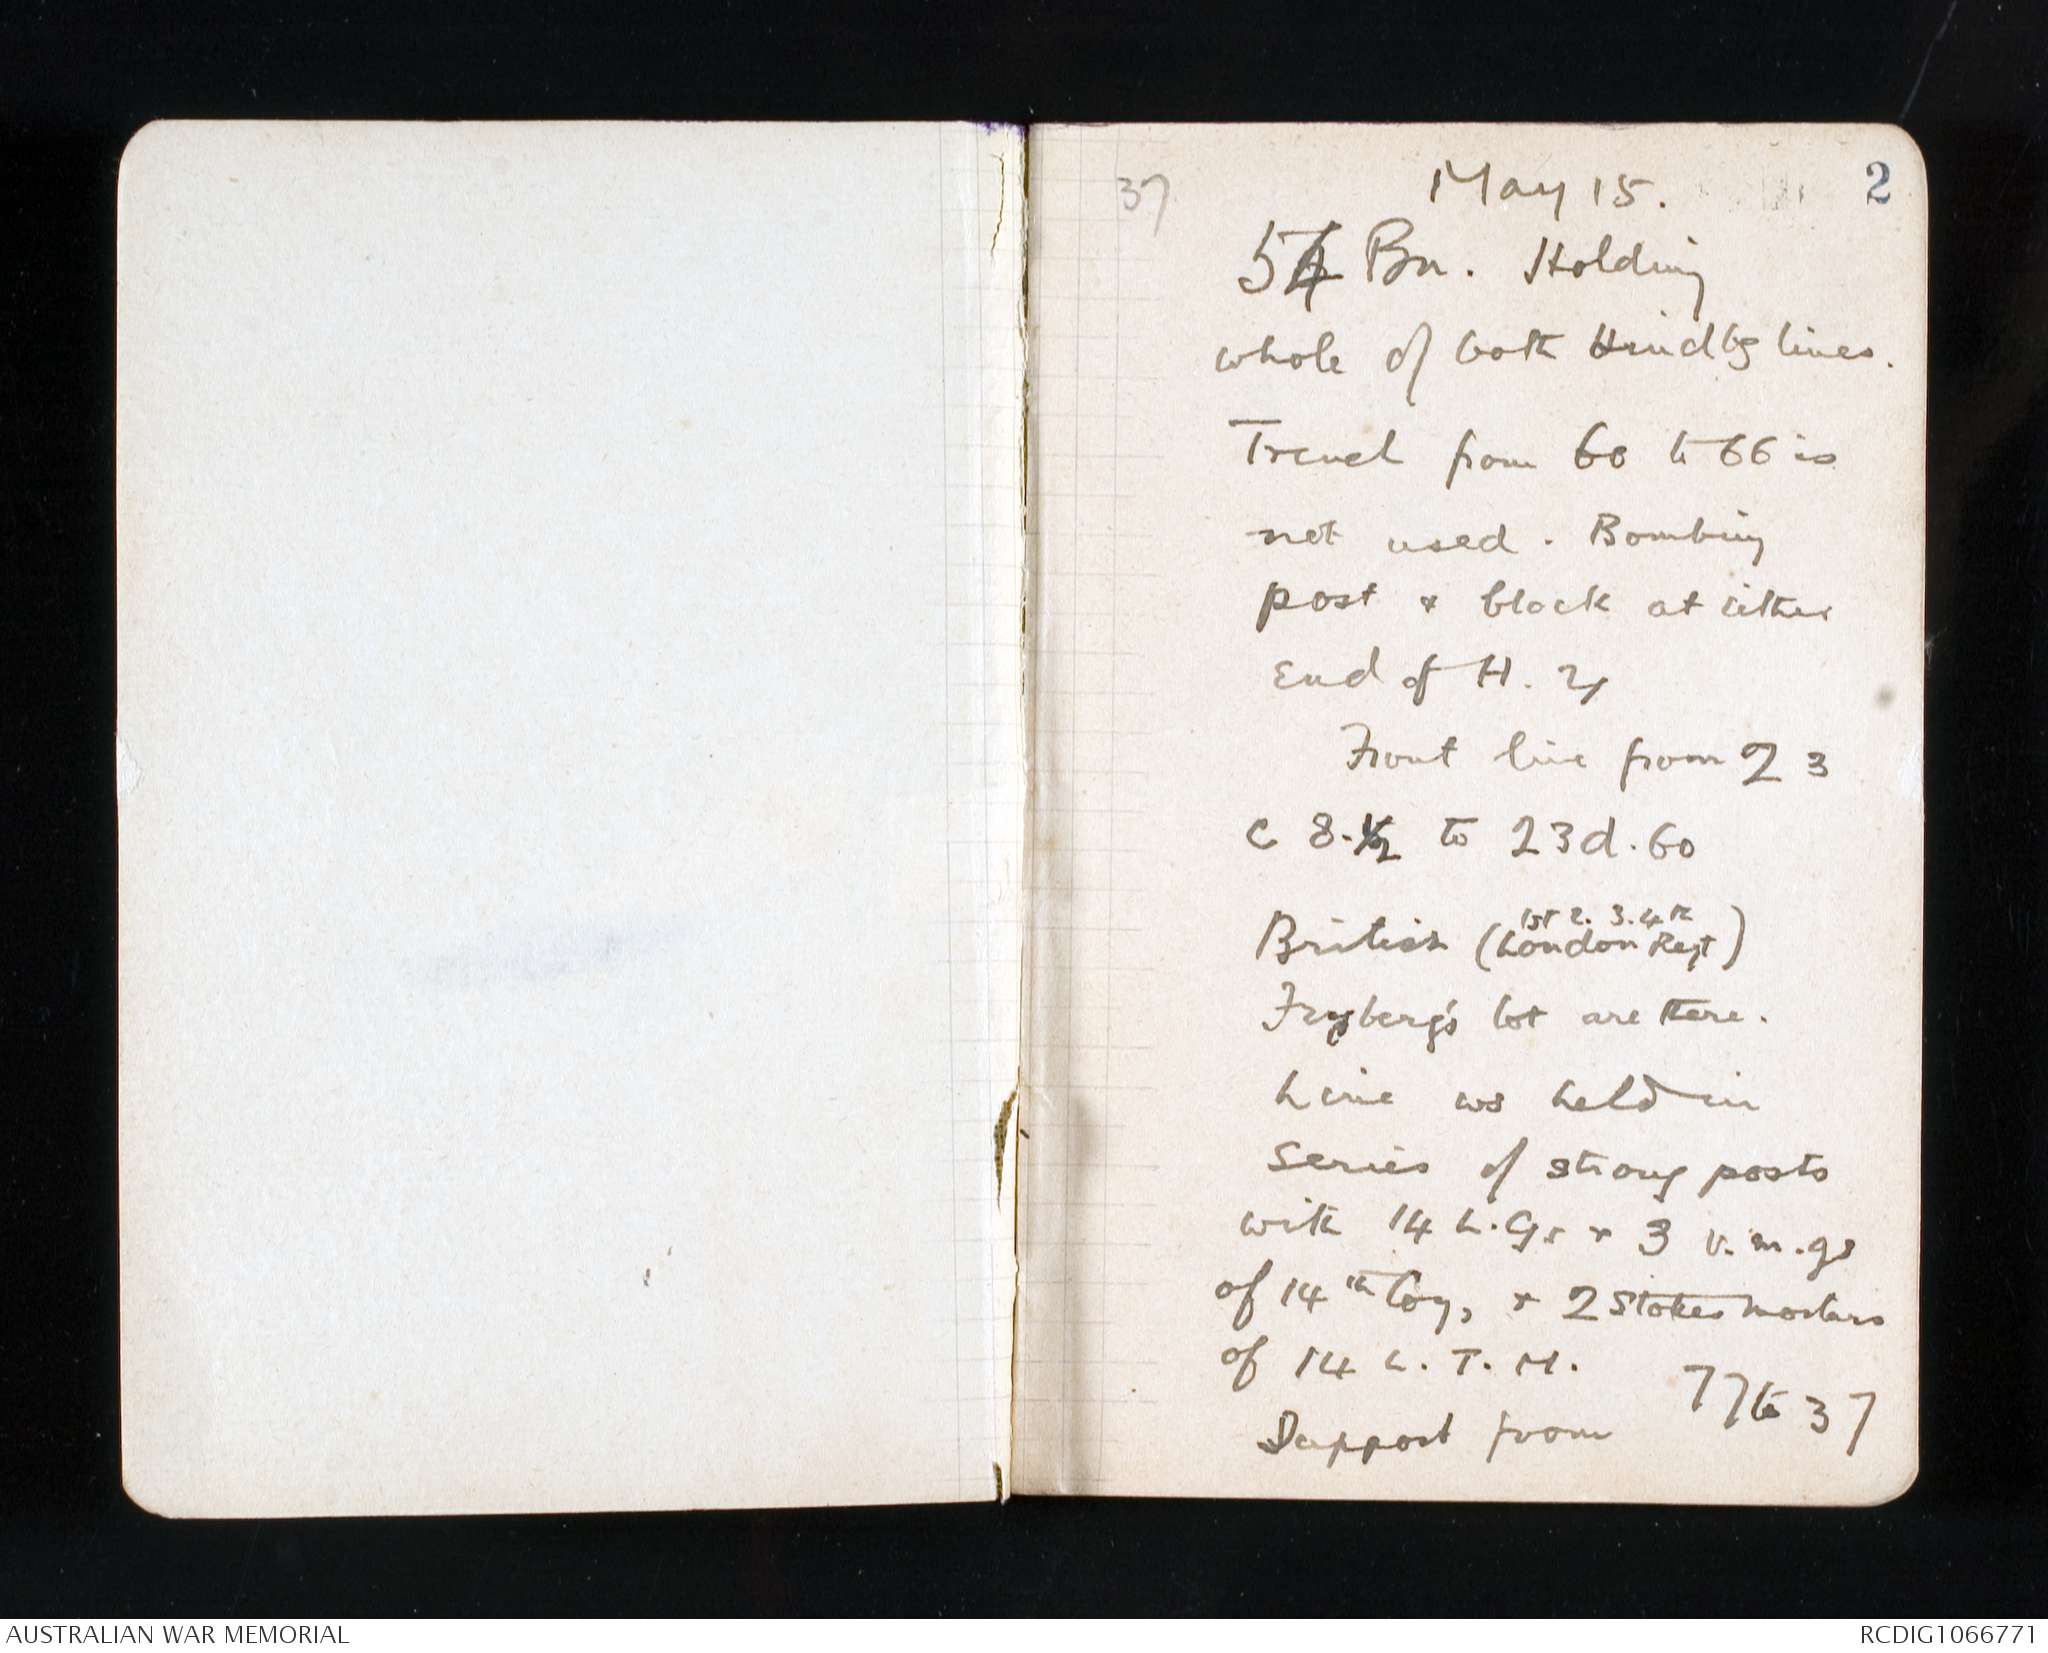 37
May 15.
2
54 Bn. Holding
whole of both Hindbg lines.
Trench from 60 to 66 is
not used. Bombing
post & block at either
end of H. 2,
Front line from 23
c 8.½ to 23d.60
1st 2. 3. 4th
British (London Regt)
Freyberg's lot are there.
Line ws held in
series of strong posts
with 14 L.Gs & 3 v.m.gs
of 14th Coy, & 2 Stokes mortars
of 14 L. T. M.
Support from 77 to 37
AUSTRALIAN WAR MEMORIAL
RCDIG1066771